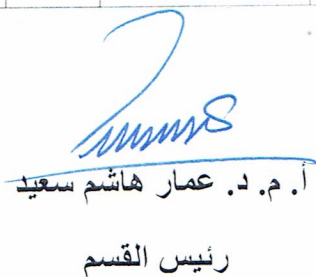 أ. م. د. عمار هاشم سعيد
رئيس القسم